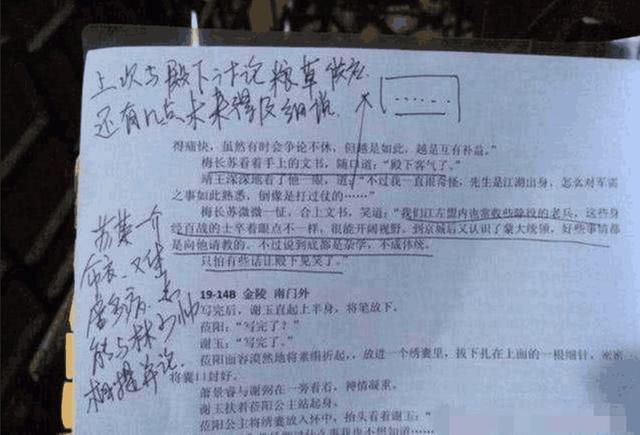 上次与殿下讨论粮草供应
还有几点未来得及细说
得痛快，虽然有时会争论不休，但越是如此，越是互有补益。”
梅长苏看着手上的文书，随口道：“殿下客气了。”
靖王深深地看了他一眼，道：“不过我一直很奇怪，先生是江湖出身，怎么对军需
之事如此熟悉，倒像是打过仗的……”
梅长苏微微一怔，合上文书，笑道：“我们江左盟内也常收些除役的老兵，这些身
经百战的士卒着眼点不一样，很能开阔视野。到京城后又认识了蒙大统领，好些事情都
是向他请教的。不过说到底都是杂学，不成体统。
只怕有些话让殿下见笑了。”
苏某一个
布衣，又生
磨多病，
能与林少帅
相提并论
19-14B 金陵 南门外
写完后，谢玉直起上半身，将笔放下。
莅阳：“写完了？”
谢玉：“写完了。”
莅阳面容漠然地将素绢折起，放进一个绣囊里，拔下扎在上面的一根细针，密密
将囊口封好。
萧景睿与谢弼在一旁看着，神情凝重。
谢玉扶着莅阳公主站起身。
莅阳公主将绣囊放入怀中，抬头看着谢玉：“